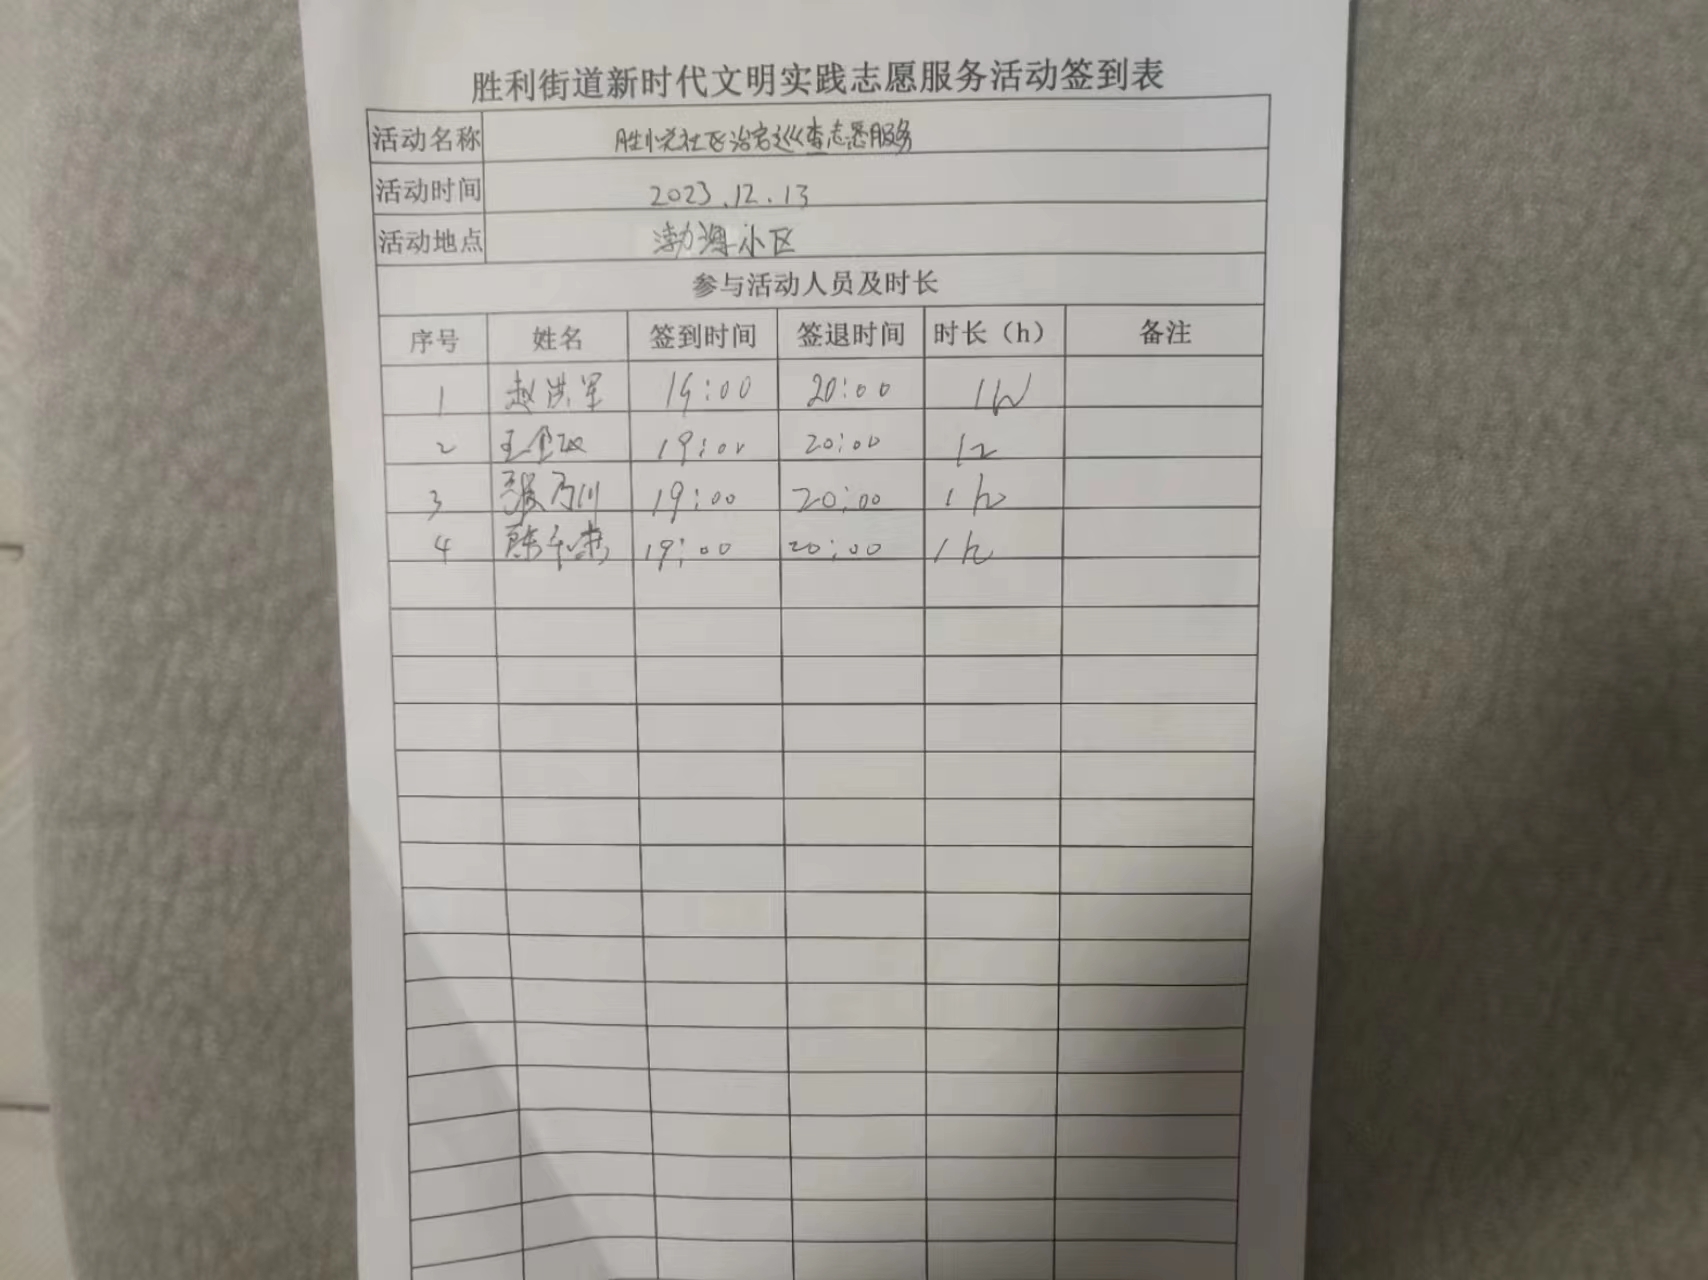 胜利街道新时代文明实践志愿服务活动签到表
活动名称 胜悦社区治安巡查志愿服务
活动时间 2023.12.13
活动地点 渤海小区
参与活动人员及时长
序号 姓名 签到时间 签退时间 时长（h） 备注
1 赵洪军 19:00 20:00 1h
2 王 19:00 20:00 1h
3 张乃川 19:00 20:00 1h
4 陈 19:00 20:00 1h